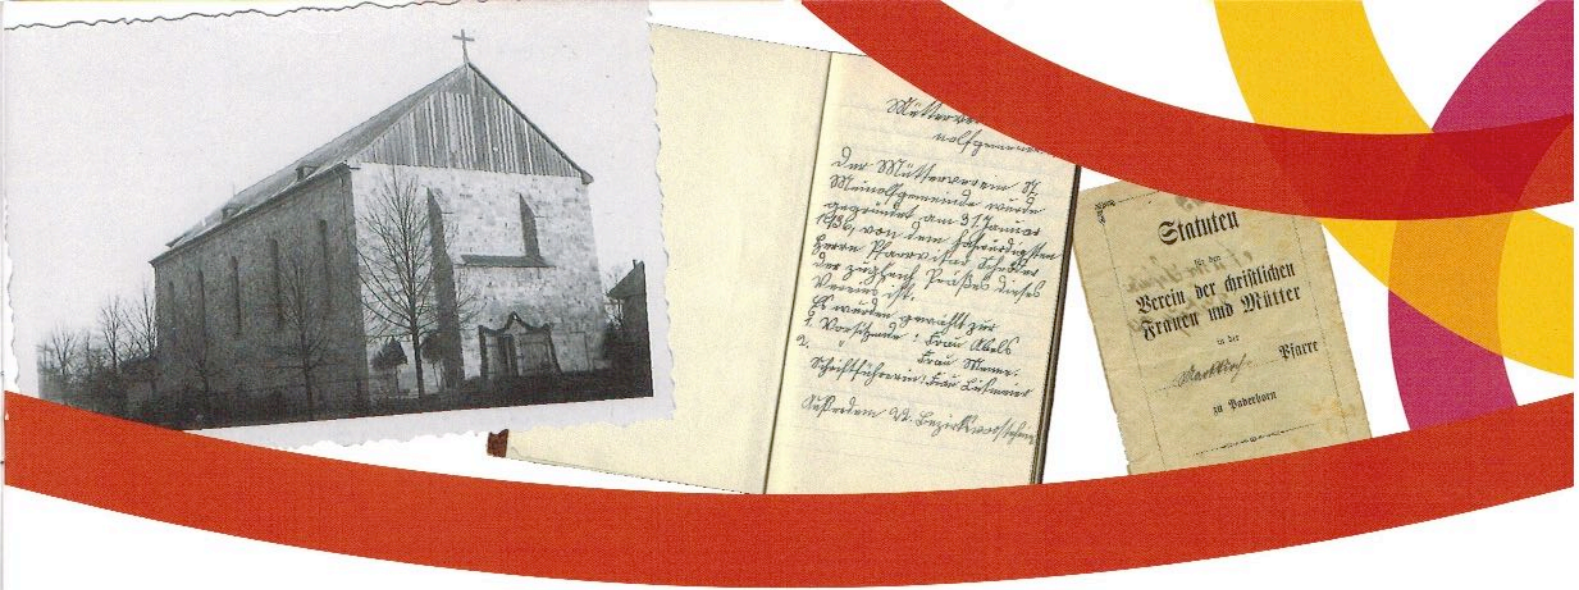 Mütterver
nolfgemein
Der Mütterverein St.
Meinolfgemeinde wurde
gegründet am 31. Januar
1936, von dem hochwürdigsten
Herrn Pfarrvikar
der zugleich Präses dieses
Vereins ist.
Es wurden gewählt zur
1. Vorsitzende: Frau Abels
2. " Frau Menne.
Schriftführerin: Frau
Außerdem 22. Bezirksvorstehe
Statuten
für den
Verein der christlichen
Frauen und Mütter
in der
Pfarre
zu Paderborn